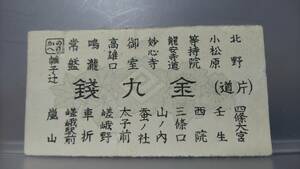 北野
小松原
等持院
龍安寺道
妙心寺
御室
高雄口
鳴瀧
常盤
のりかへ
帷子ノ辻
(片道)
金九錢
四條大宮
壬生
西院
三條口
山ノ内
蚕ノ社
太子前
嵯峨野
車折
嵯峨駅前
嵐山